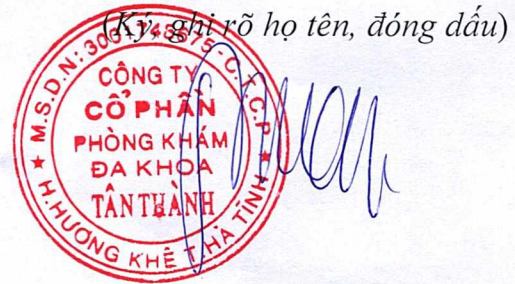 (Ký, ghi rõ họ tên, đóng dấu)
M.S.D.N: C.T.C.P
CÔNG TY
CỔ PHẦN
PHÒNG KHÁM
ĐA KHOA
TÂN THÀNH
H.HƯƠNG KHÊ T.HÀ TĨNH